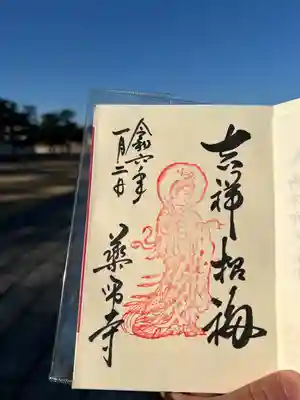 吉祥招福
令和六年
一月二日
薬師寺